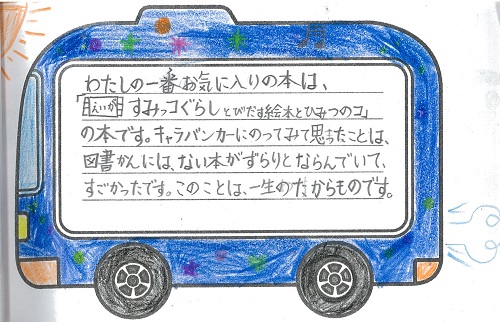 わたしの一番お気に入りの本は、
「映画すみっコぐらしとびだす絵本とひみつのコ」
の本です。キャラバンカーにのってみて思ったことは、
図書かんには、ない本がずらりとならんでいて、
すごかったです。このことは、一生のたからものです。